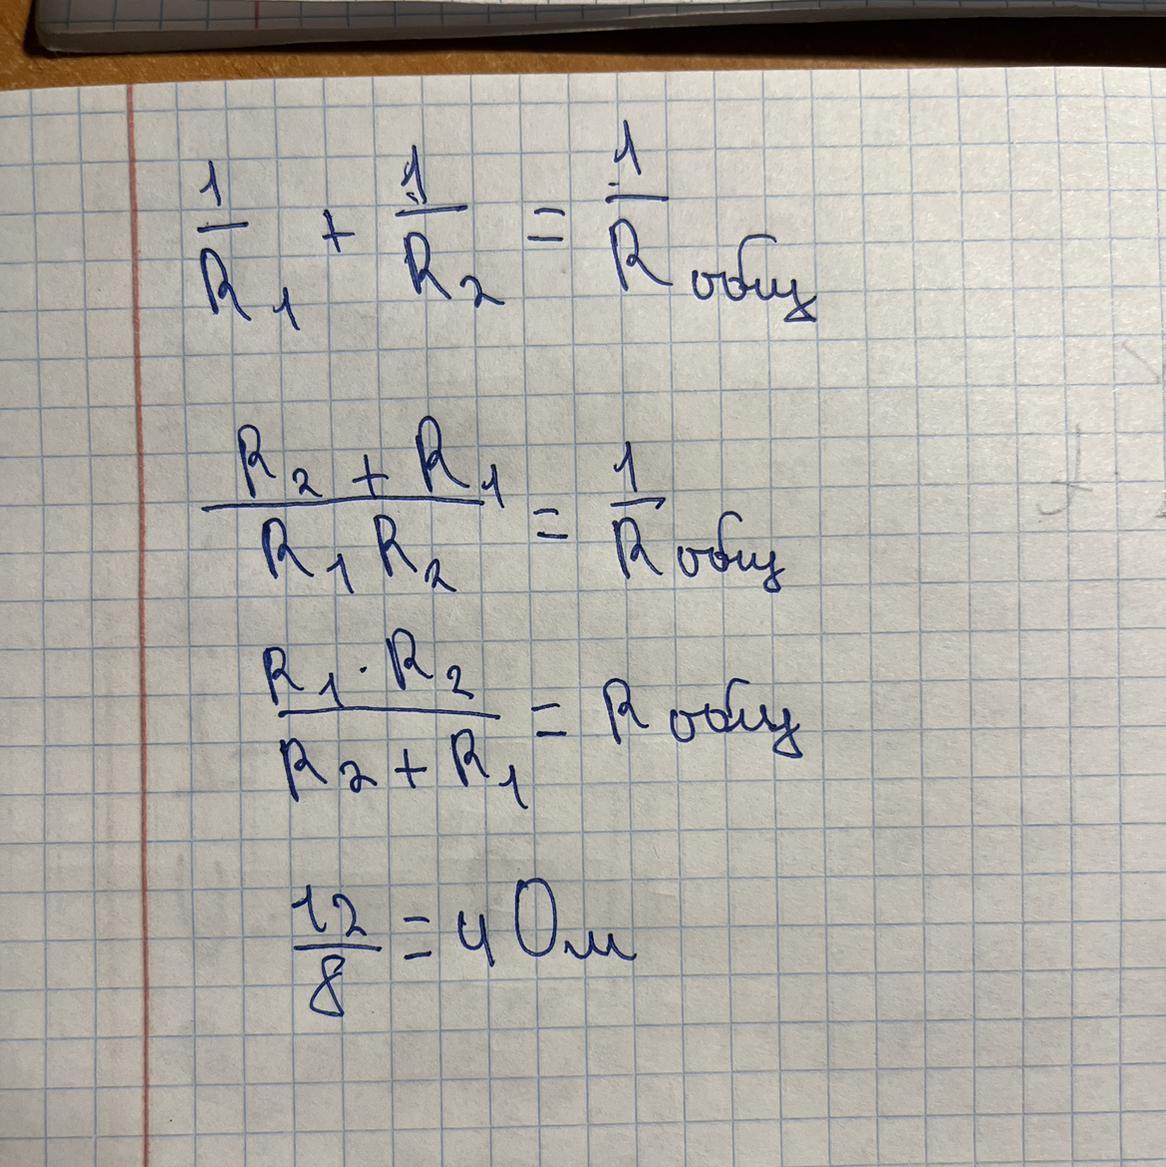 1/R1 + 1/R2 = 1/Rобщ
R2 + R1/R1 R2 = 1/Rобщ
R1 · R2/R2 + R1 = Rобщ
12/8 = 4 Ом